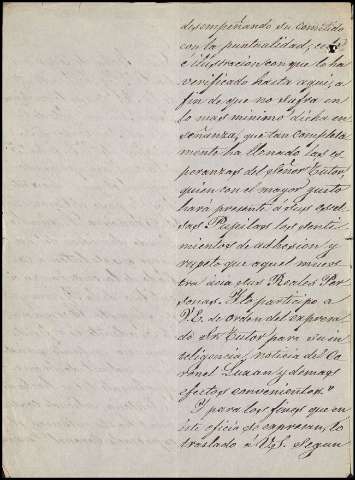 desempeñando su cometido
con la puntualidad, celo
é ilustracion con que lo ha
verificado hasta aqui, a
fin de que no sufra en
lo mas minimo dicha en
señanza, que tan completa
mente ha llenado las es
peranzas del Señor Tutor,
quien con el mayor gusto
hará presente á sus escel
sas Pupilas los senti
mientos de adhesion y
respeto que aquel mues
tra acia sus Reales Per
sonas. Y lo participo a
V.E. de orden del espresa
do Sr. Tutor para su in
teligencia, noticia del Co
ronel Luxan y demas
efectos convenientes."
Y para los fines que en
este oficio se espresan, lo
traslado á V.S. segun